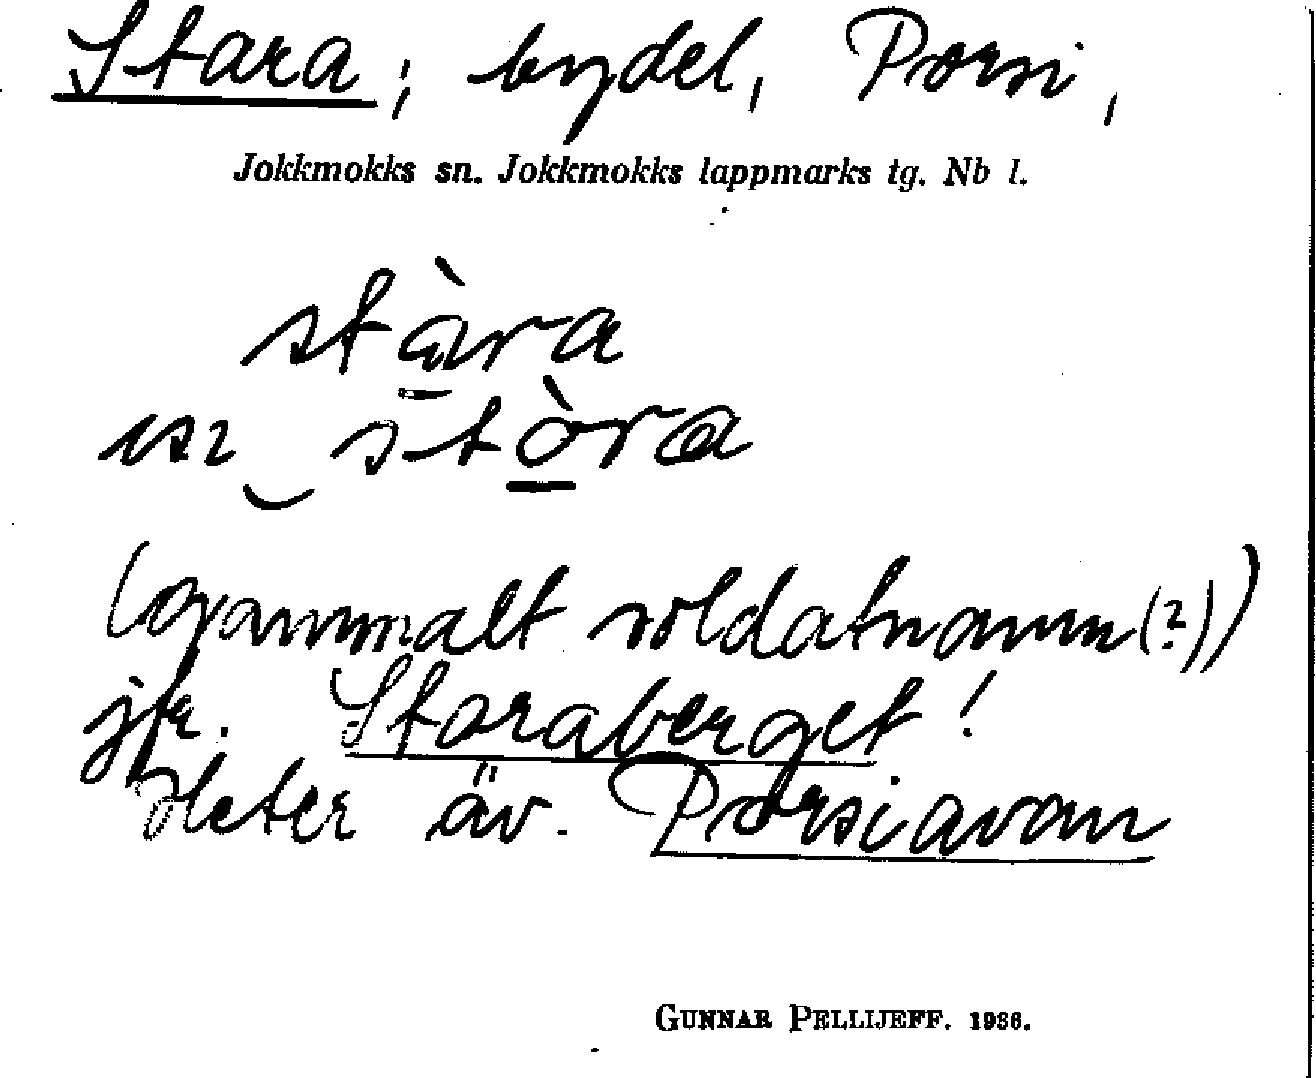 Stara; bydel, Porsi,
Jokkmokks sn. Jokkmokks lappmarks tg. Nb l.
stàra
stòra
(gammalt soldatnamn(?))
jfr. Staraberget!
Heter äv. Porsiavan
GUNNAR PELLIJEFF. 1936.